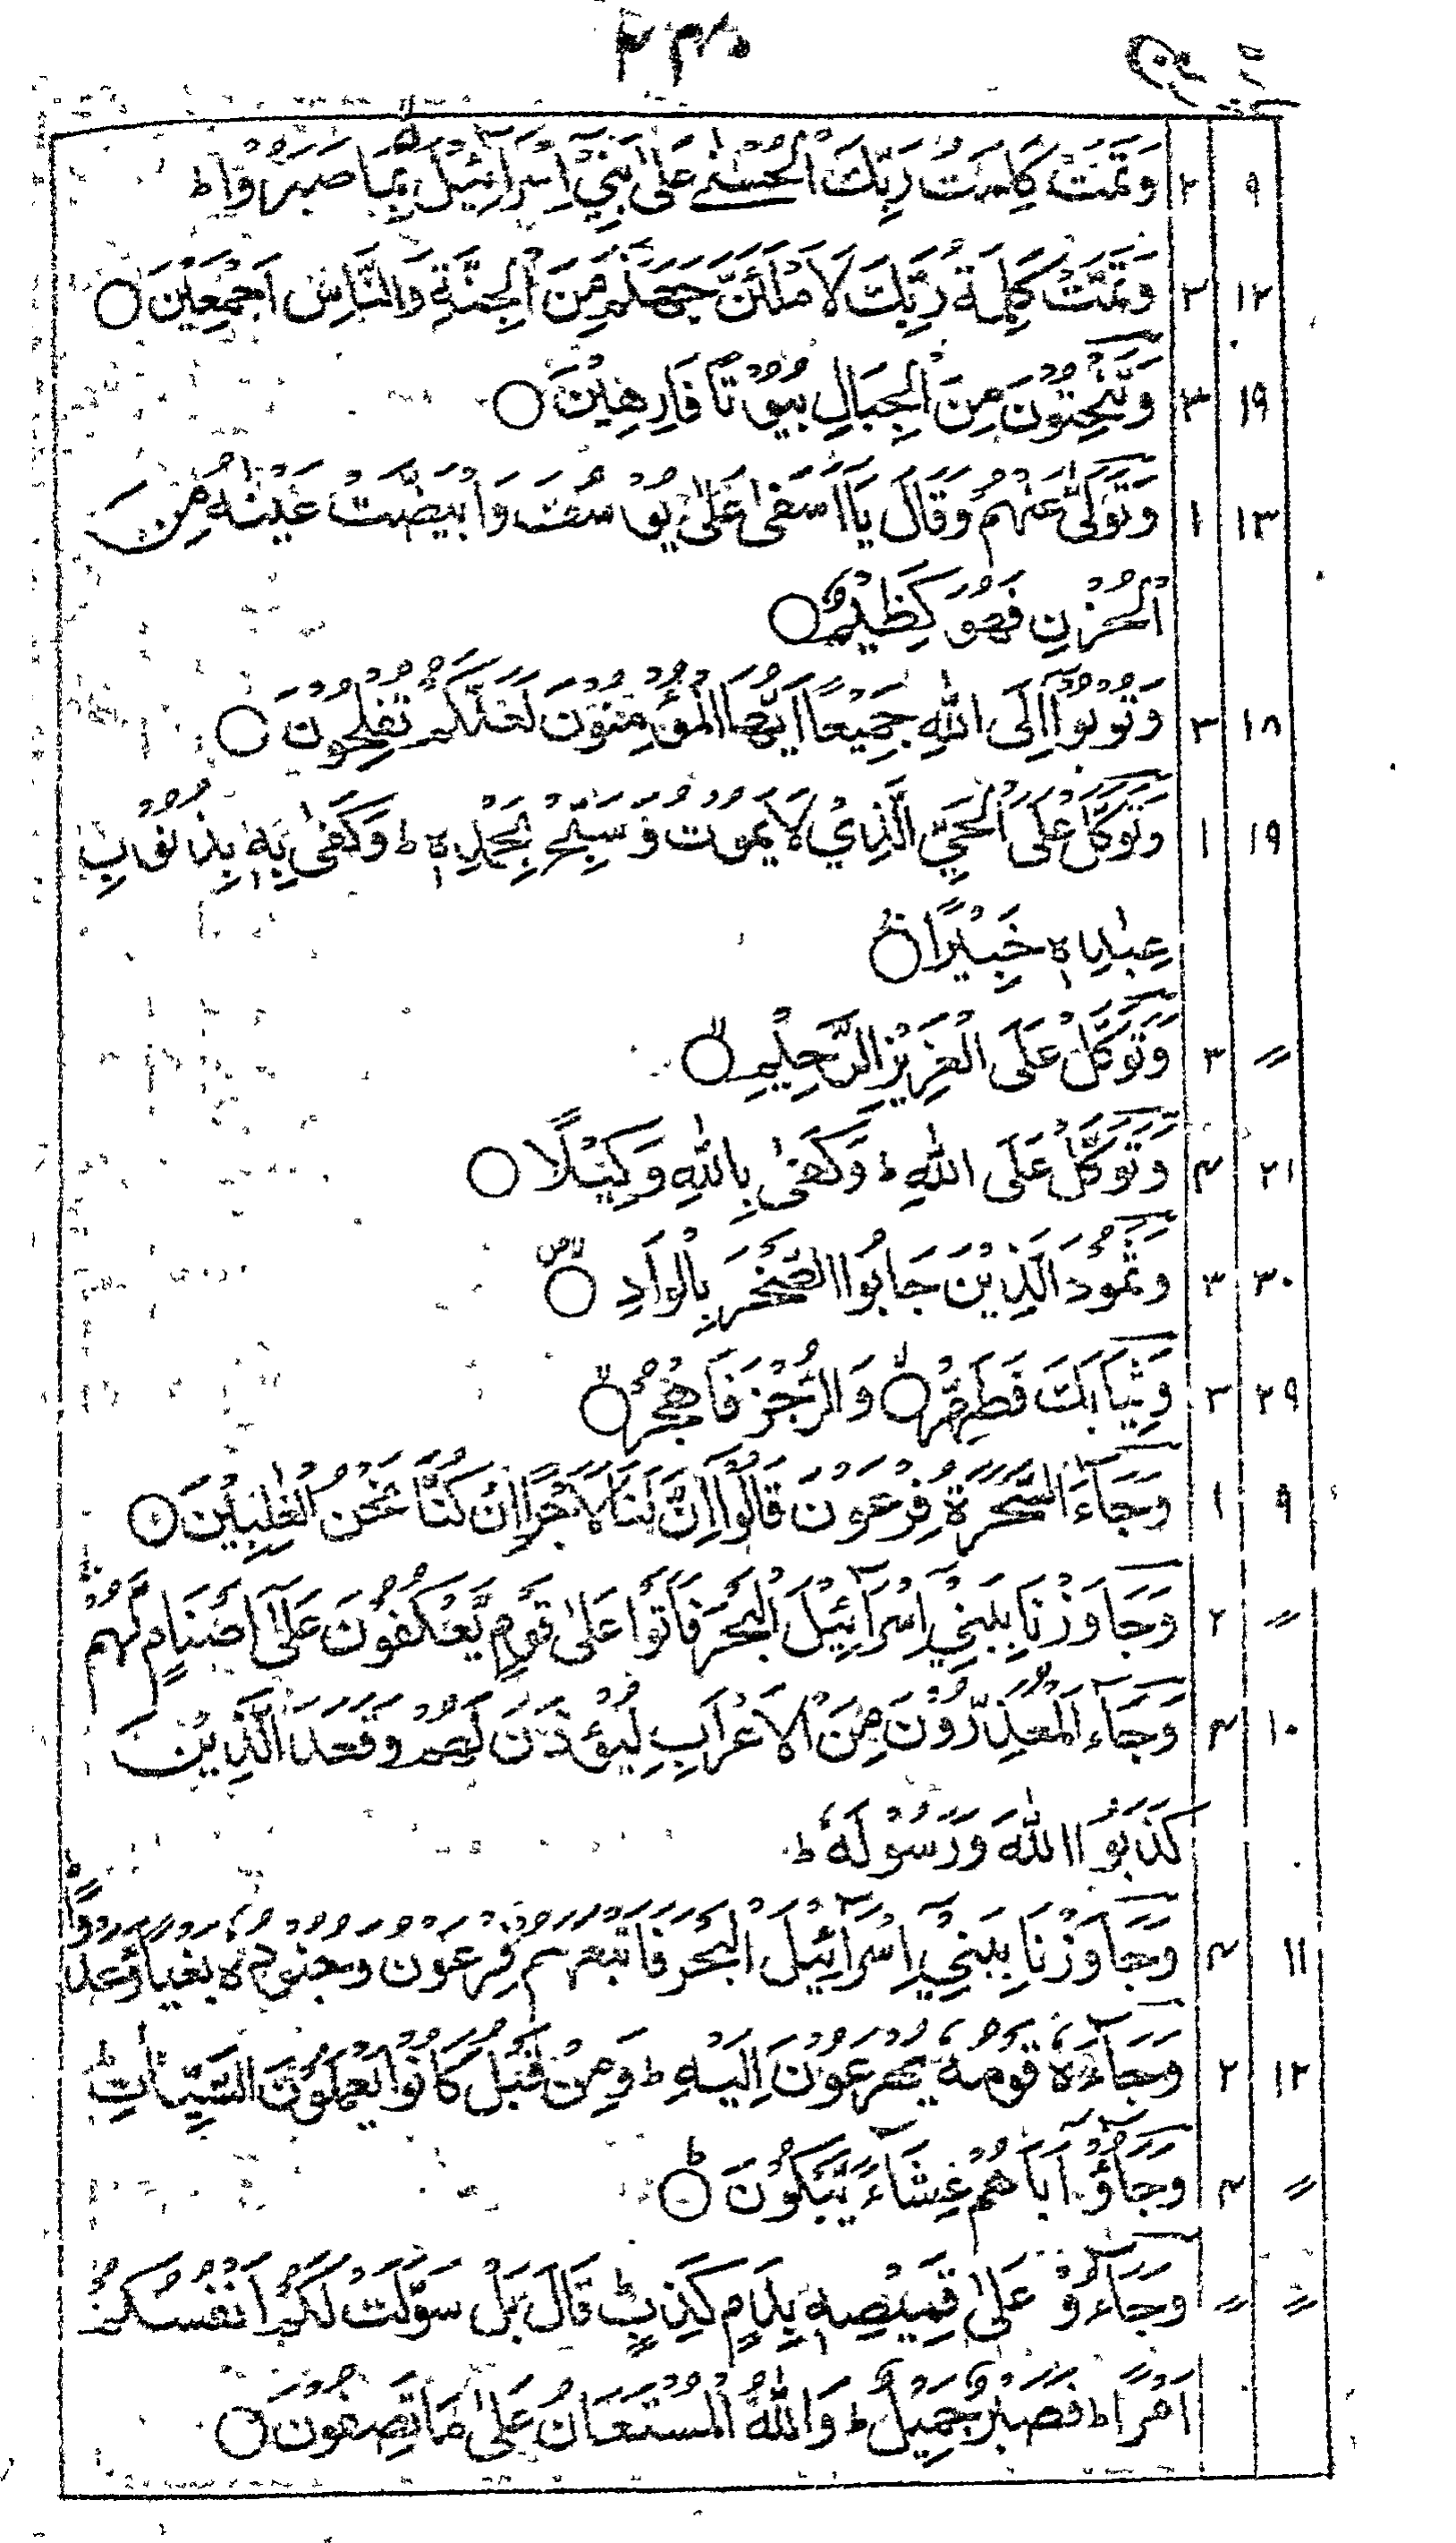 ٩ ٢ وَتَمَّتْ كَلِمَتُ رَبِّكَ الْحُسْنٰى عَلٰى بَنِيْٓ اِسْرَآئِيْلَ بِمَا صَبَرُوْا ط
١٢ ٣ وَتَمَّتْ كَلِمَةُ رَبِّكَ لَاَمْلَئَنَّ جَهَنَّمَ مِنَ الْجِنَّةِ وَالنَّاسِ اَجْمَعِيْنَ ○
١٩ ٣ وَتَنْحِتُوْنَ مِنَ الْجِبَالِ بُيُوْتًا فَارِهِيْنَ ○
١٣ ١ وَتَوَلّٰى عَنْهُمْ وَقَالَ يَااَسَفٰى عَلٰى يُوْسُفَ وَابْيَضَّتْ عَيْنٰهُ مِنَ
الْحُزْنِ فَهُوَ كَظِيْمٌ ○
١٨ ٣ وَتُوْبُوْٓا اِلَى اللّٰهِ جَمِيْعًا اَيُّهَا الْمُؤْمِنُوْنَ لَعَلَّكُمْ تُفْلِحُوْنَ ○
١٩ ١ وَتَوَكَّلْ عَلَى الْحَيِّ الَّذِيْ لَا يَمُوْتُ وَسَبِّحْ بِحَمْدِهٖ ط وَكَفٰى بِهٖ بِذُنُوْبِ
عِبَادِهٖ خَبِيْرًا ○
〃 ٣ وَتَوَكَّلْ عَلَى الْعَزِيْزِ الرَّحِيْمِ ○
٢١ ٤ وَتَوَكَّلْ عَلَى اللّٰهِ ط وَكَفٰى بِاللّٰهِ وَكِيْلًا ○
٣٠ ٣ وَثَمُوْدَ الَّذِيْنَ جَابُوا الصَّخْرَ بِالْوَادِ ○
٢٩ ٣ وَثِيَابَكَ فَطَهِّرْ ○ وَالرُّجْزَ فَاهْجُرْ ○
٩ ١ وَجَآءَ السَّحَرَةُ فِرْعَوْنَ قَالُوْٓا اِنَّ لَنَا لَاَجْرًا اِنْ كُنَّا نَحْنُ الْغٰلِبِيْنَ ○
〃 ٢ وَجَاوَزْنَا بِبَنِيْٓ اِسْرَآئِيْلَ الْبَحْرَ فَاَتَوْا عَلٰى قَوْمٍ يَّعْكُفُوْنَ عَلٰٓى اَصْنَامٍ لَّهُمْ
١٠ ٤ وَجَآءَ الْمُعَذِّرُوْنَ مِنَ الْاَعْرَابِ لِيُؤْذَنَ لَهُمْ وَقَعَدَ الَّذِيْنَ
كَذَبُوا اللّٰهَ وَرَسُوْلَهٗ ط
١١ ٤ وَجَاوَزْنَا بِبَنِيْٓ اِسْرَآئِيْلَ الْبَحْرَ فَاَتْبَعَهُمْ فِرْعَوْنُ وَجُنُوْدُهٗ بَغْيًا وَّعَدْوًا ط
١٢ ٢ وَجَآءَهٗ قَوْمُهٗ يُهْرَعُوْنَ اِلَيْهِ ط وَمِنْ قَبْلُ كَانُوْا يَعْمَلُوْنَ السَّيِّاٰتِ ط
〃 ٤ وَجَآءُوْٓ اَبَاهُمْ عِشَآءً يَّبْكُوْنَ ○
〃 〃 وَجَآءُوْ عَلٰى قَمِيْصِهٖ بِدَمٍ كَذِبٍ ط قَالَ بَلْ سَوَّلَتْ لَكُمْ اَنْفُسُكُمْ
اَمْرًا ط فَصَبْرٌ جَمِيْلٌ ط وَاللّٰهُ الْمُسْتَعَانُ عَلٰى مَا تَصِفُوْنَ ○